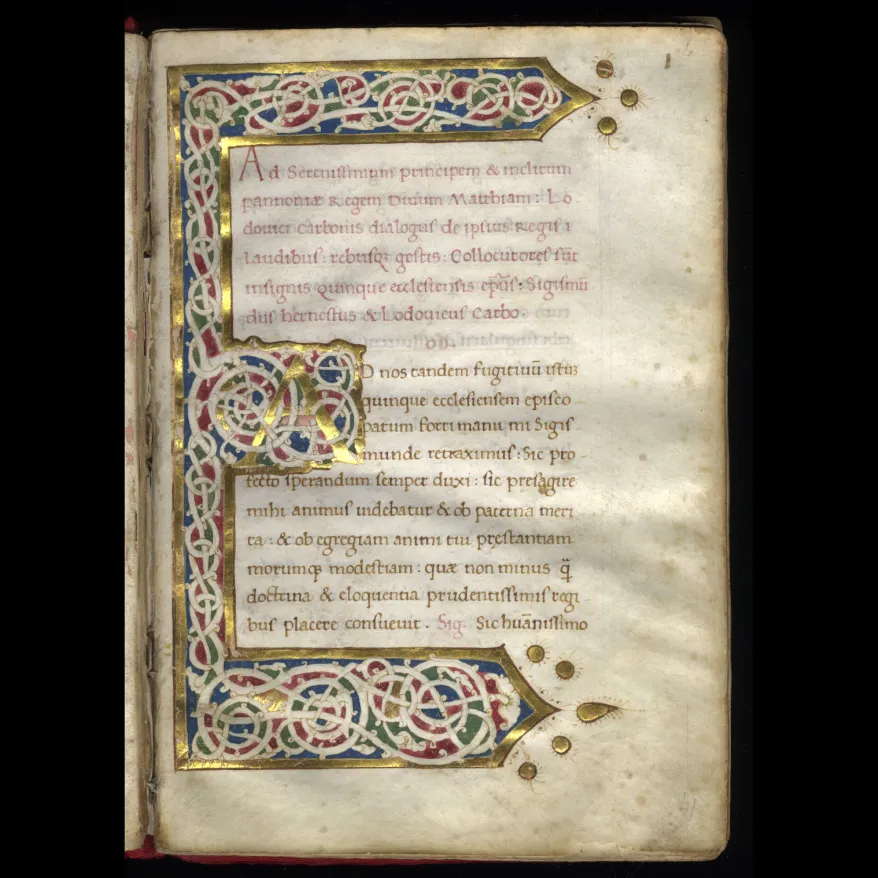 Ad Serenissimum principem & inclitum
pannoniæ Regem Diuum Mathiam: Lo
douici Carbonis dialogus de ipsius Regis
laudibus: rebusq; gestis: Collocutores sūt
insignis Quinque ecclesiensis ep̄us: Sigismū
dus hernestus & Lodouicus Carbo.
AD nos tandem fugitiuū istū
quinque ecclesiensem episco
patum forti manu mi Sigis
munde retraximus: Sic pro
fecto sperandum semper duxi: sic presagire
mihi animus uidebatur & ob paterna meri
ta: & ob egregiam animi tui prestantiam
morumq; modestiam: quæ non minus q̄
doctrina & eloquentia prudentissimis regi
bus placere consueuit. Sig. Sic huānissimo